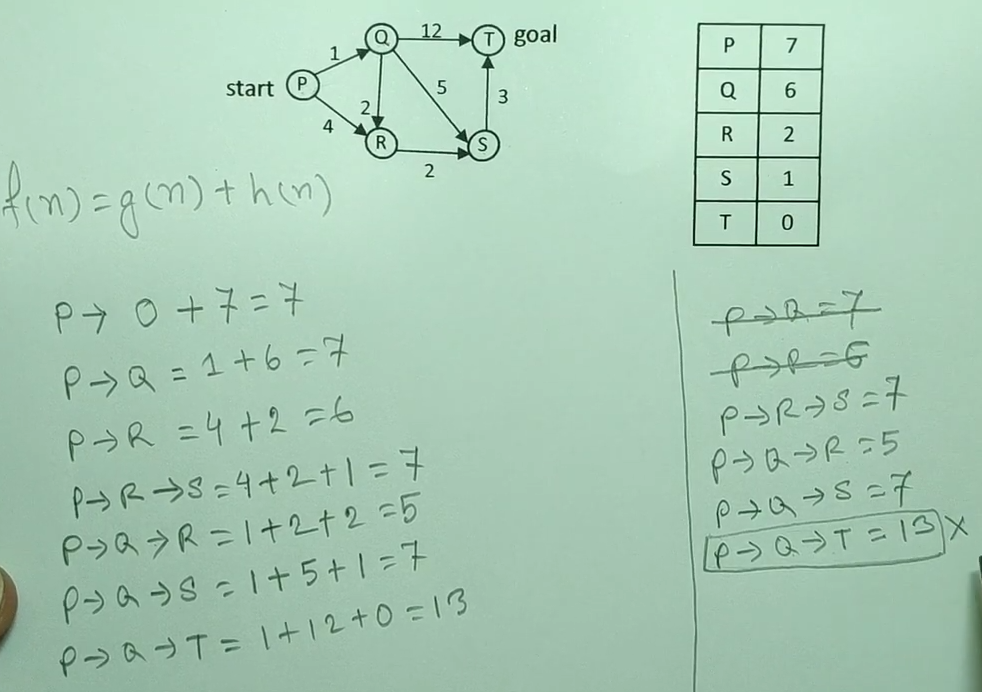 Q 12 T goal
1
start P 5 3
4 2
R S
2
P 7
Q 6
R 2
S 1
T 0
f(n) = g(n) + h(n)
P → 0 + 7 = 7
P → Q = 1 + 6 = 7
P → R = 4 + 2 = 6
P → R → S = 4 + 2 + 1 = 7
P → Q → R = 1 + 2 + 2 = 5
P → Q → S = 1 + 5 + 1 = 7
P → Q → T = 1 + 12 + 0 = 13
P → Q = 7
P → R = 6
P → R → S = 7
P → Q → R = 5
P → Q → S = 7
P → Q → T = 13 ×